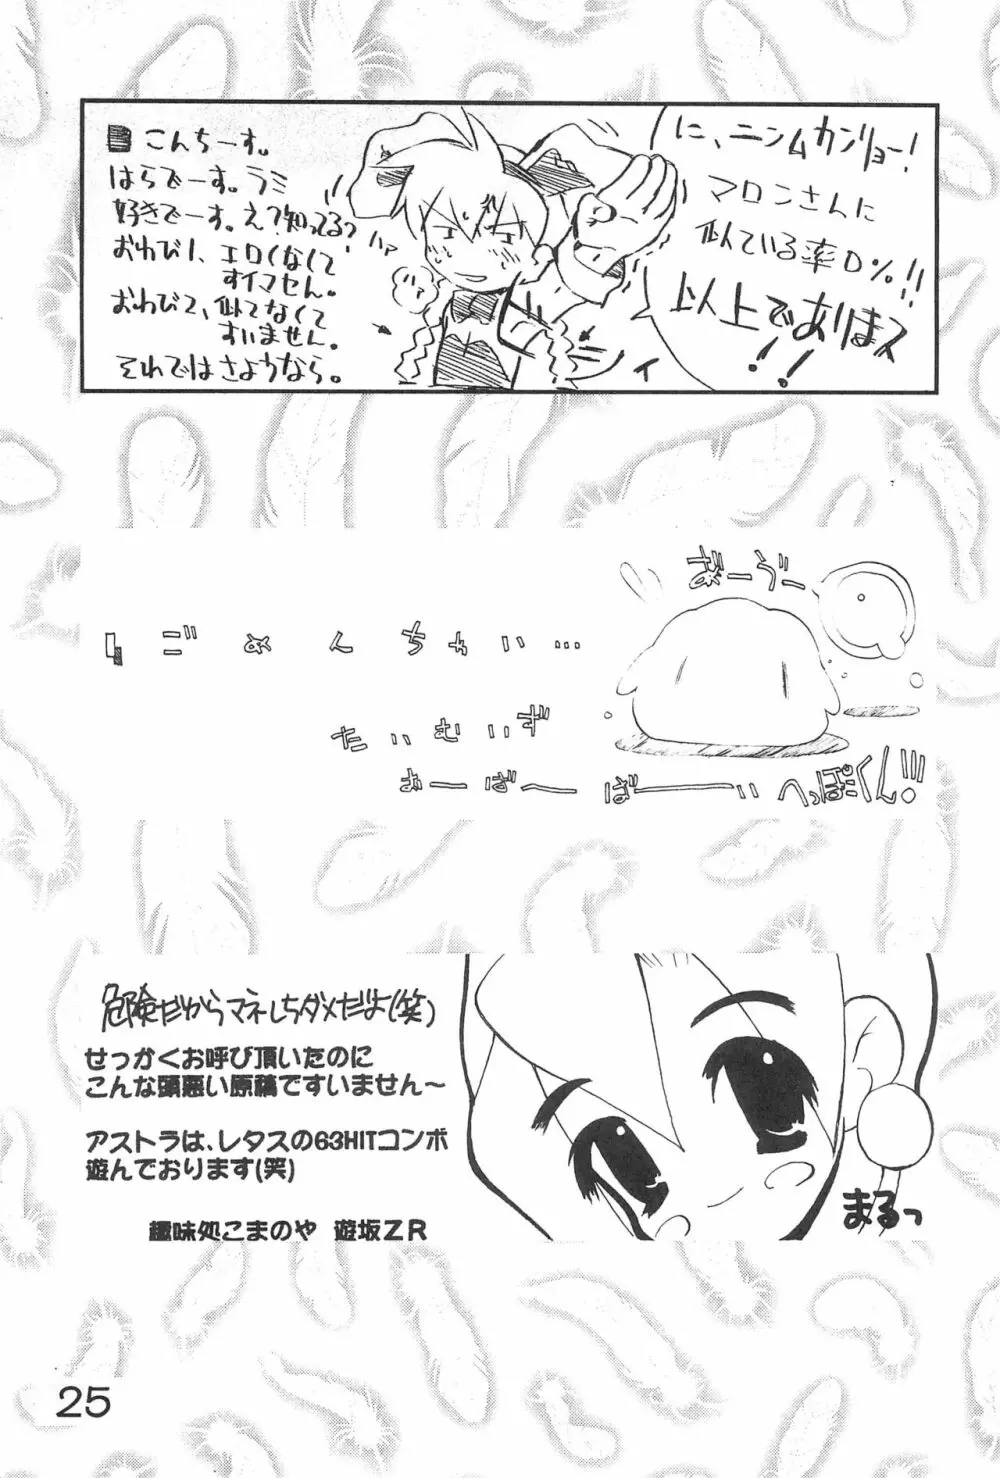 こんちーす。
はらでーす。ラミ
好きでーす。え？知ってる？
おわび1、エロくなくて
すイマセん。
おわび2、似てなくて
すいません。
それではさようなら。
に、ニンムカンリョー！
マロンさんに
似ている率0%!!
以上でありまス
!!
ごめんちゃい…
たいむいず
おーばーばーい
へっぽくん!!!
危険だからマネしちダメだよ(笑)
せっかくお呼び頂いたのに
こんな頭悪い原稿ですいません～
アストラは、レタスの63HITコンボ
遊んでおります(笑)
趣味処こまのや 遊坂ZR
まるっ
25